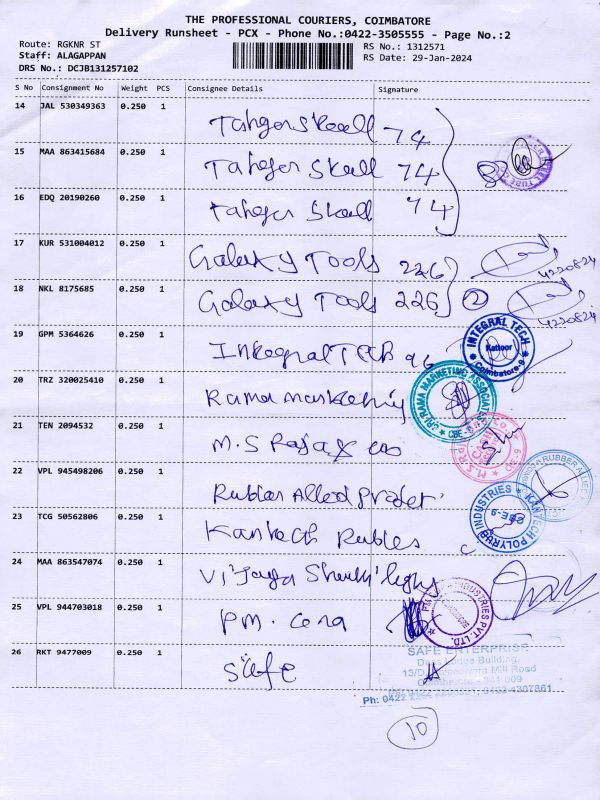 THE PROFESSIONAL COURIERS, COIMBATORE
Delivery Runsheet - PCX - Phone No.:0422-3505555 - Page No.:2
Route: RGKNR ST RS No.: 1312571
Staff: ALAGAPPAN RS Date: 29-Jan-2024
DRS No.: DCJB131257102
S No Consignment No Weight PCS Consignee Details Signature
14 JAL 530349363 0.250 1 74
15 MAA 863415684 0.250 1 74
16 EDQ 20190260 0.250 1 74
17 KUR 531004012 0.250 1 Galaxy Tools 226
4220824
18 NKL 8175685 0.250 1 Galaxy Tools 226 2
4220824
19 GPM 5364626 0.250 1 96
INTEGRAL TECH
Kattoor
Coimbatore-9
20 TRZ 320025410 0.250 1 Rama
SRI RAMA MARKETING ASSOCIATES
21 TEN 2094532 0.250 1 M.S
22 VPL 945498206 0.250 1 Rubber Allied
RUBBER ALLIED
23 TCG 50562806 0.250 1
KANTECH POLYRUB INDUSTRIES
24 MAA 863547074 0.250 1 Vijaya
25 VPL 944703018 0.250 1 PM.
PM INDUSTRIES PVT. LTD.
26 RKT 9477009 0.250 1 Safe
SAFE ENTERPRISE
Building,
Mill Road
641 009
Ph: 0422
10